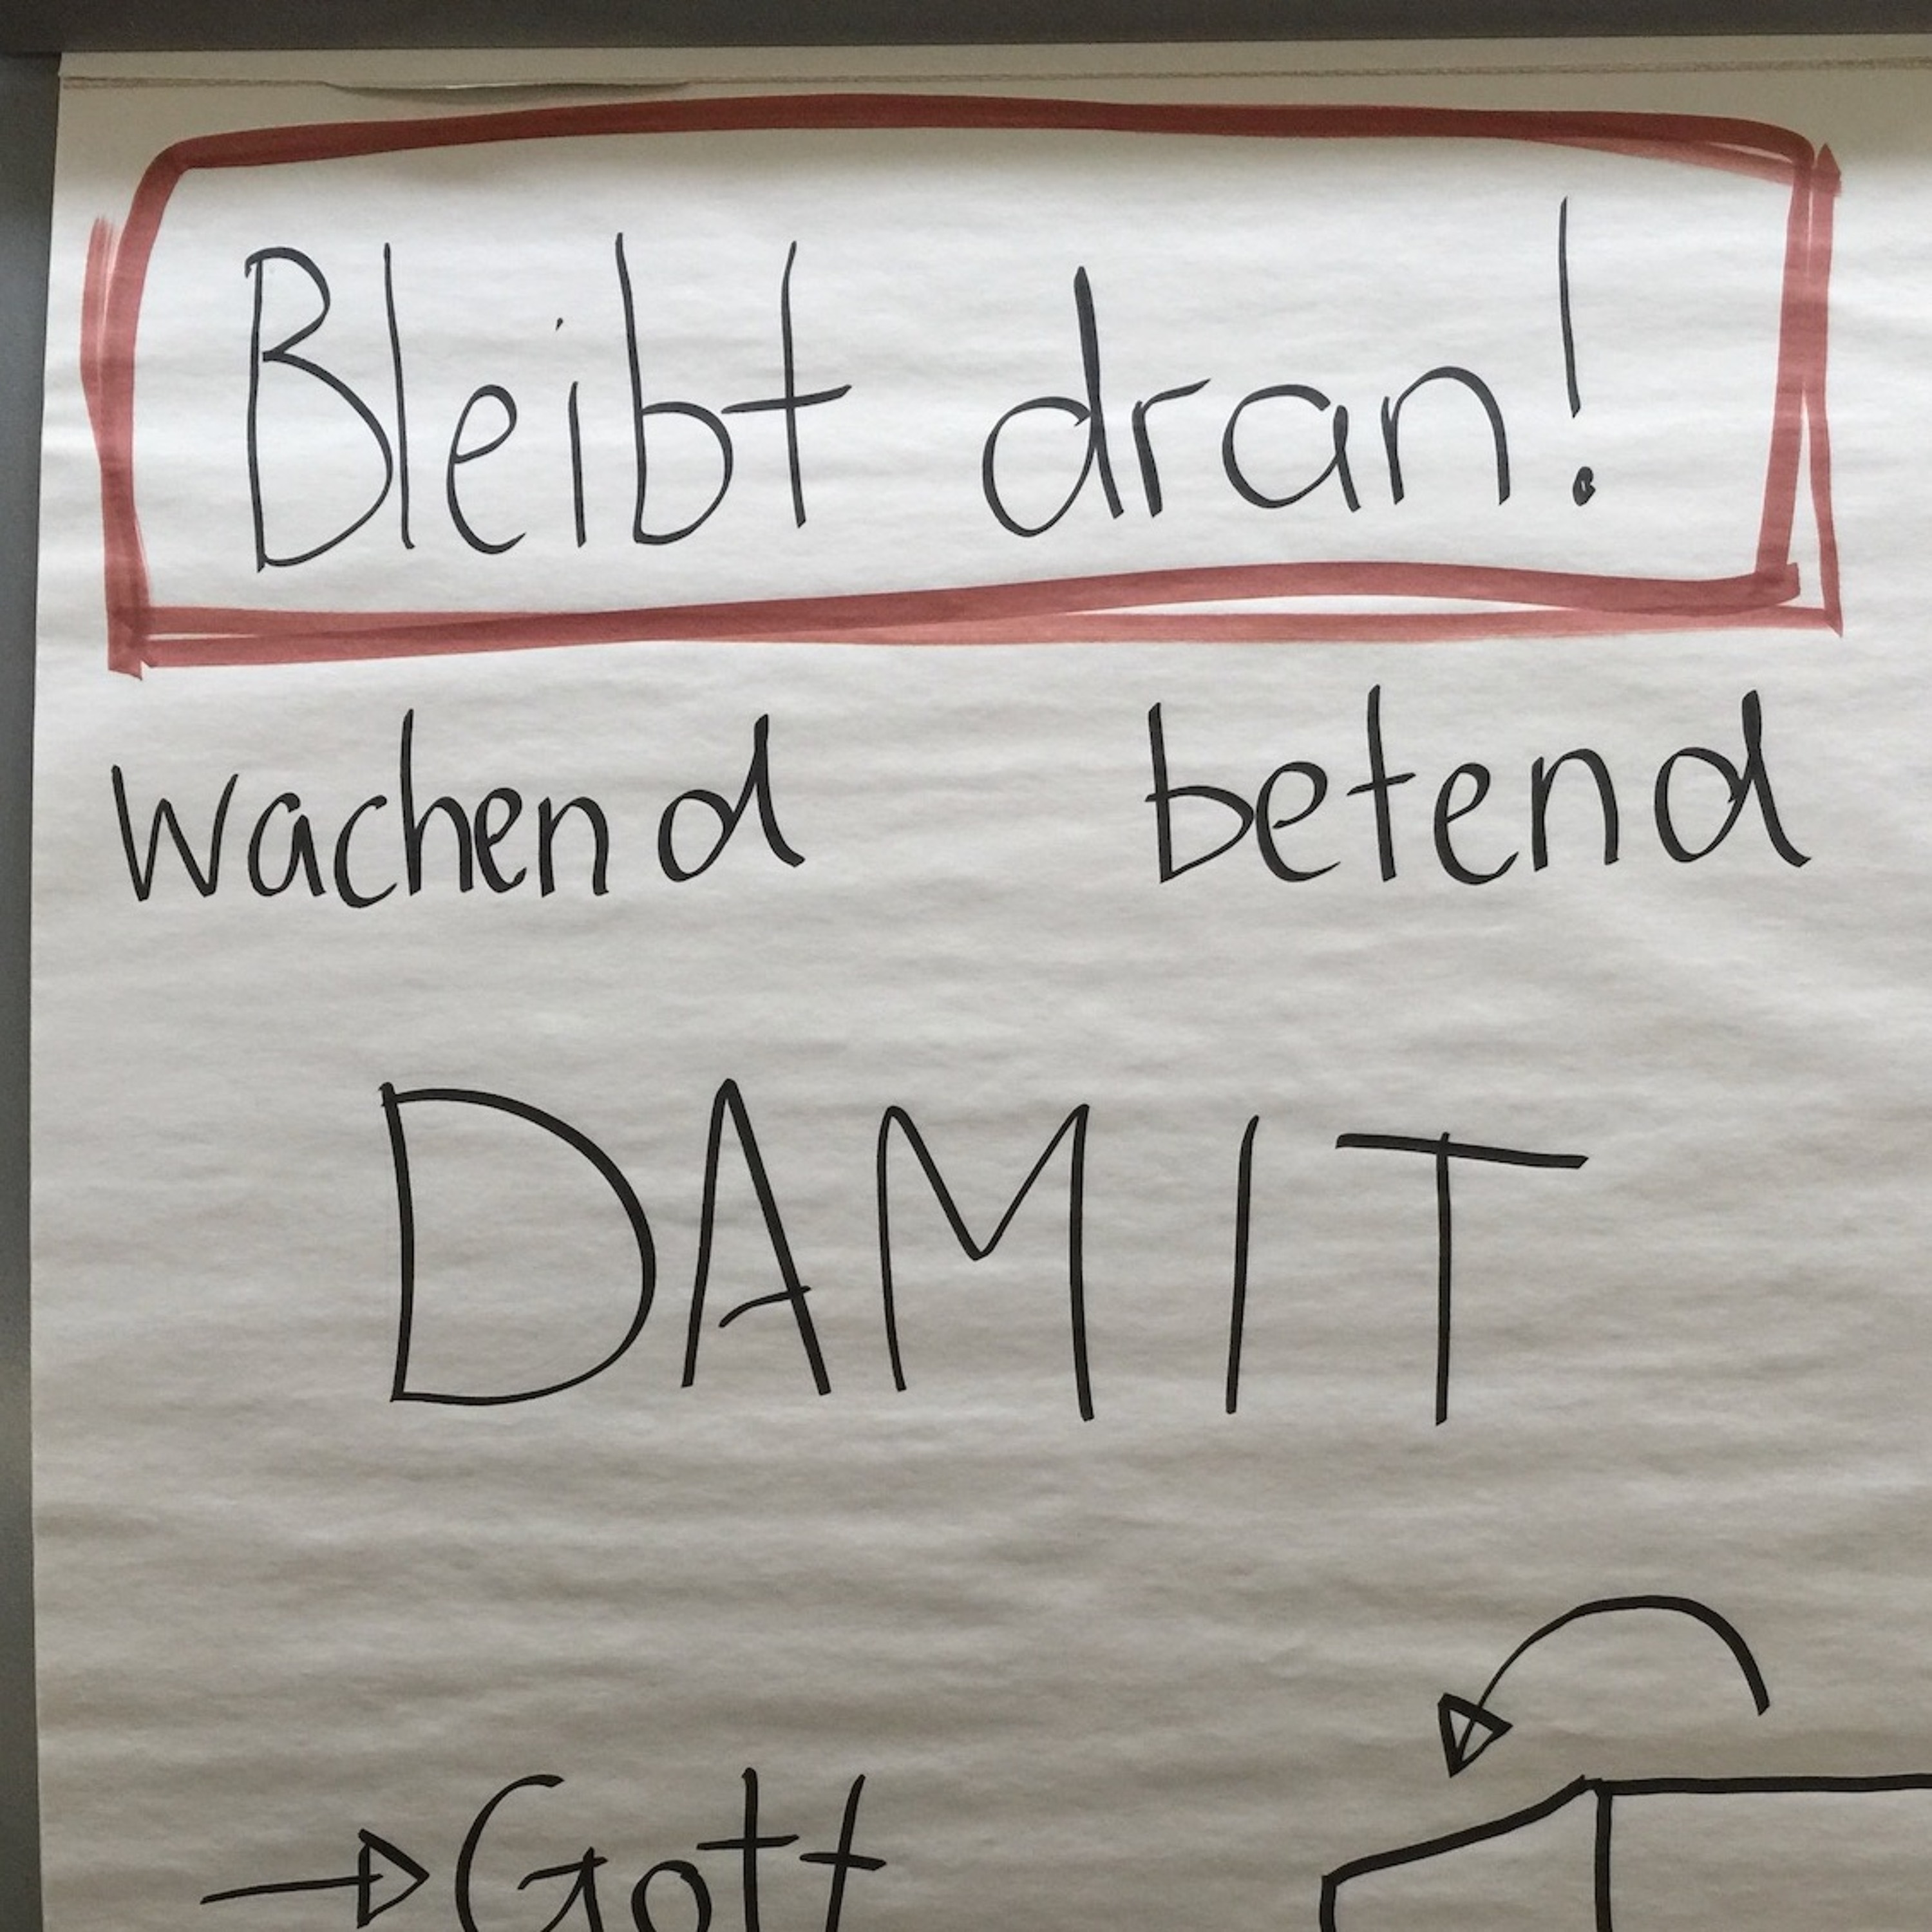 Bleibt dran!
wachend betend
DAMIT
→ Gott